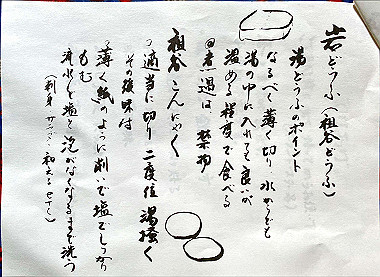 岩どうふ(祖谷どうふ)
湯どうふのポイント
なるべく薄く切り、水からでも
湯の中に入れても良いが
温める程度で食べる
煮過は 禁物
祖谷こんにゃく
適当に切り 二度位 湯掻く
その後味は
薄く紙のように削いで塩でしっかり
もむ
流水で塩と泡がなくなるまで洗う
(刺身 サラダ・和えるせて)